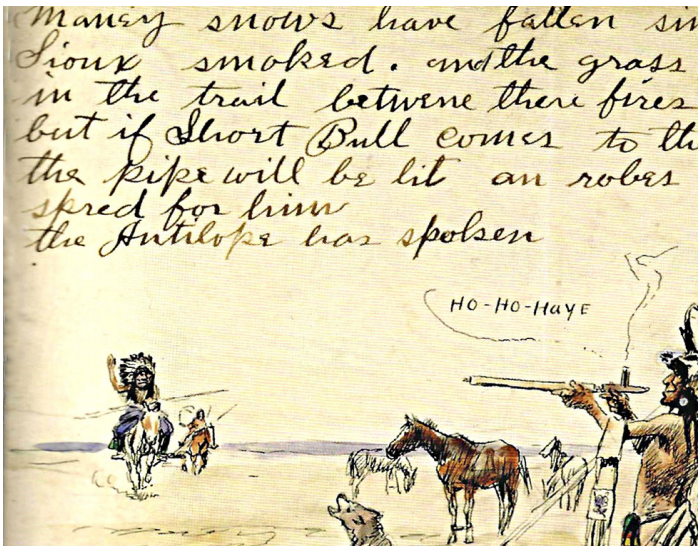 Maney snows have fallen sin
Sioux smoked. and the grass
in the trail betwene there fires
but if Short Bull comes to th
the pipe will be lit an robes
spred for him
the Antilope has spoken
HO-HO-HAYE